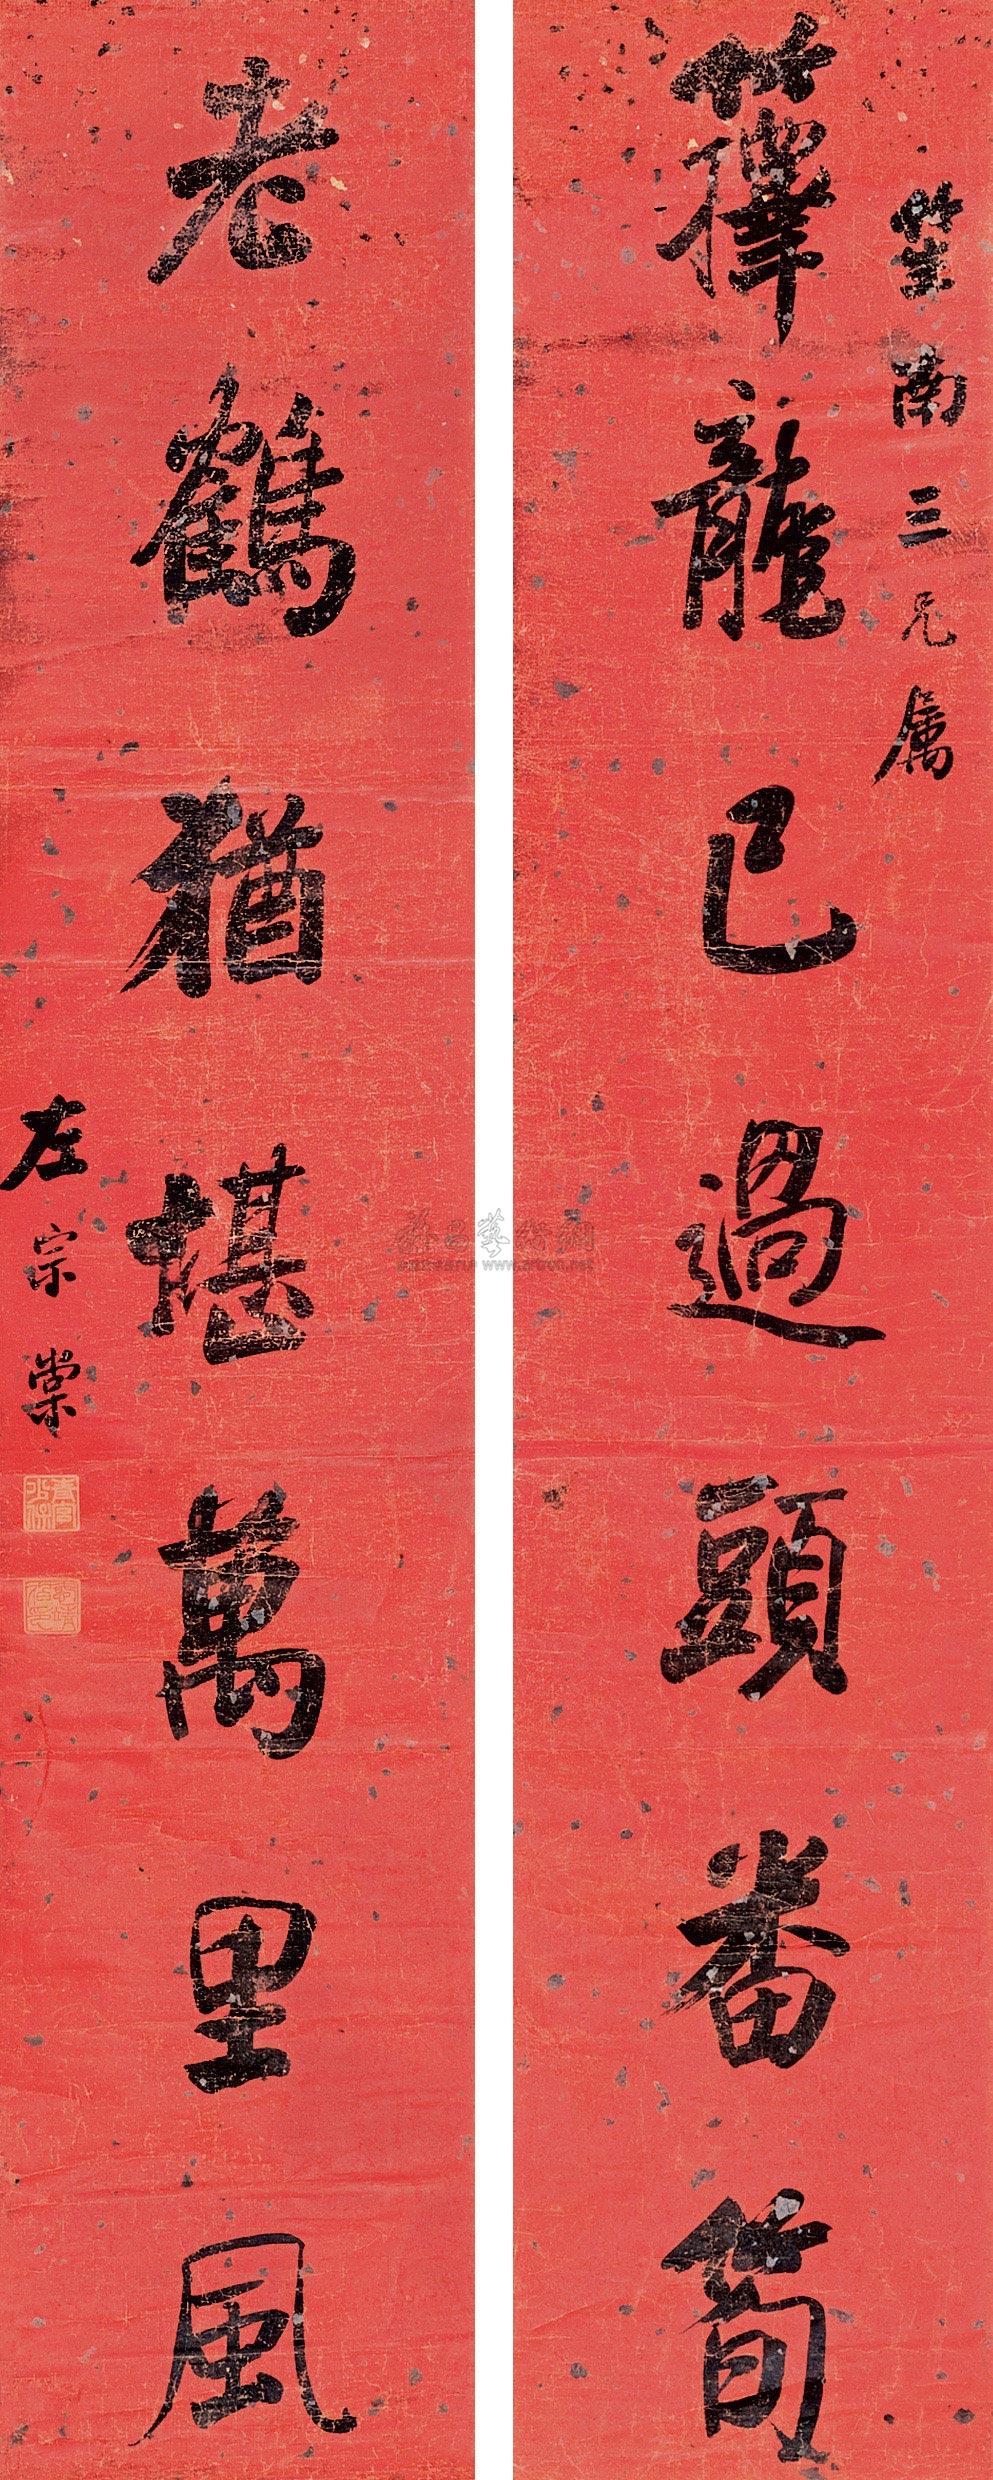 笙南三兄属
籜龍已過頭番筍
老鶴猶堪萬里風
左宗棠